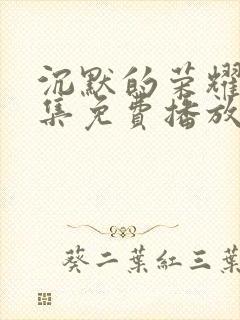 沉默的荣耀
集免費播放
葵二葉紅三葉